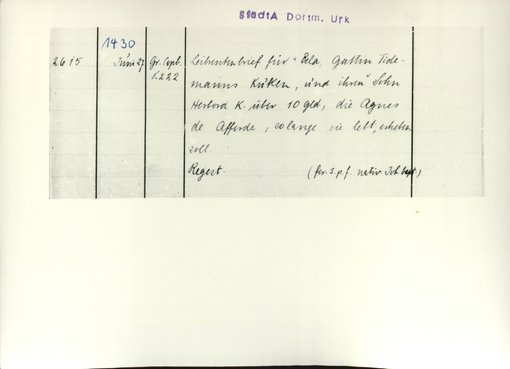 StadtA Dortm. Urk
1430
2615 Juni 27 Gr. Copb. Leibrentenbrief für Bela, Gattin Tide-
S.222 manns Küken, und ihren Sohn
Herbord K. über 10 Gld, die Agnes
de Afferde, solange sie lebt, erheben
soll.
Regest. (fer. 3. p. f. nativ. Joh. bapt.)